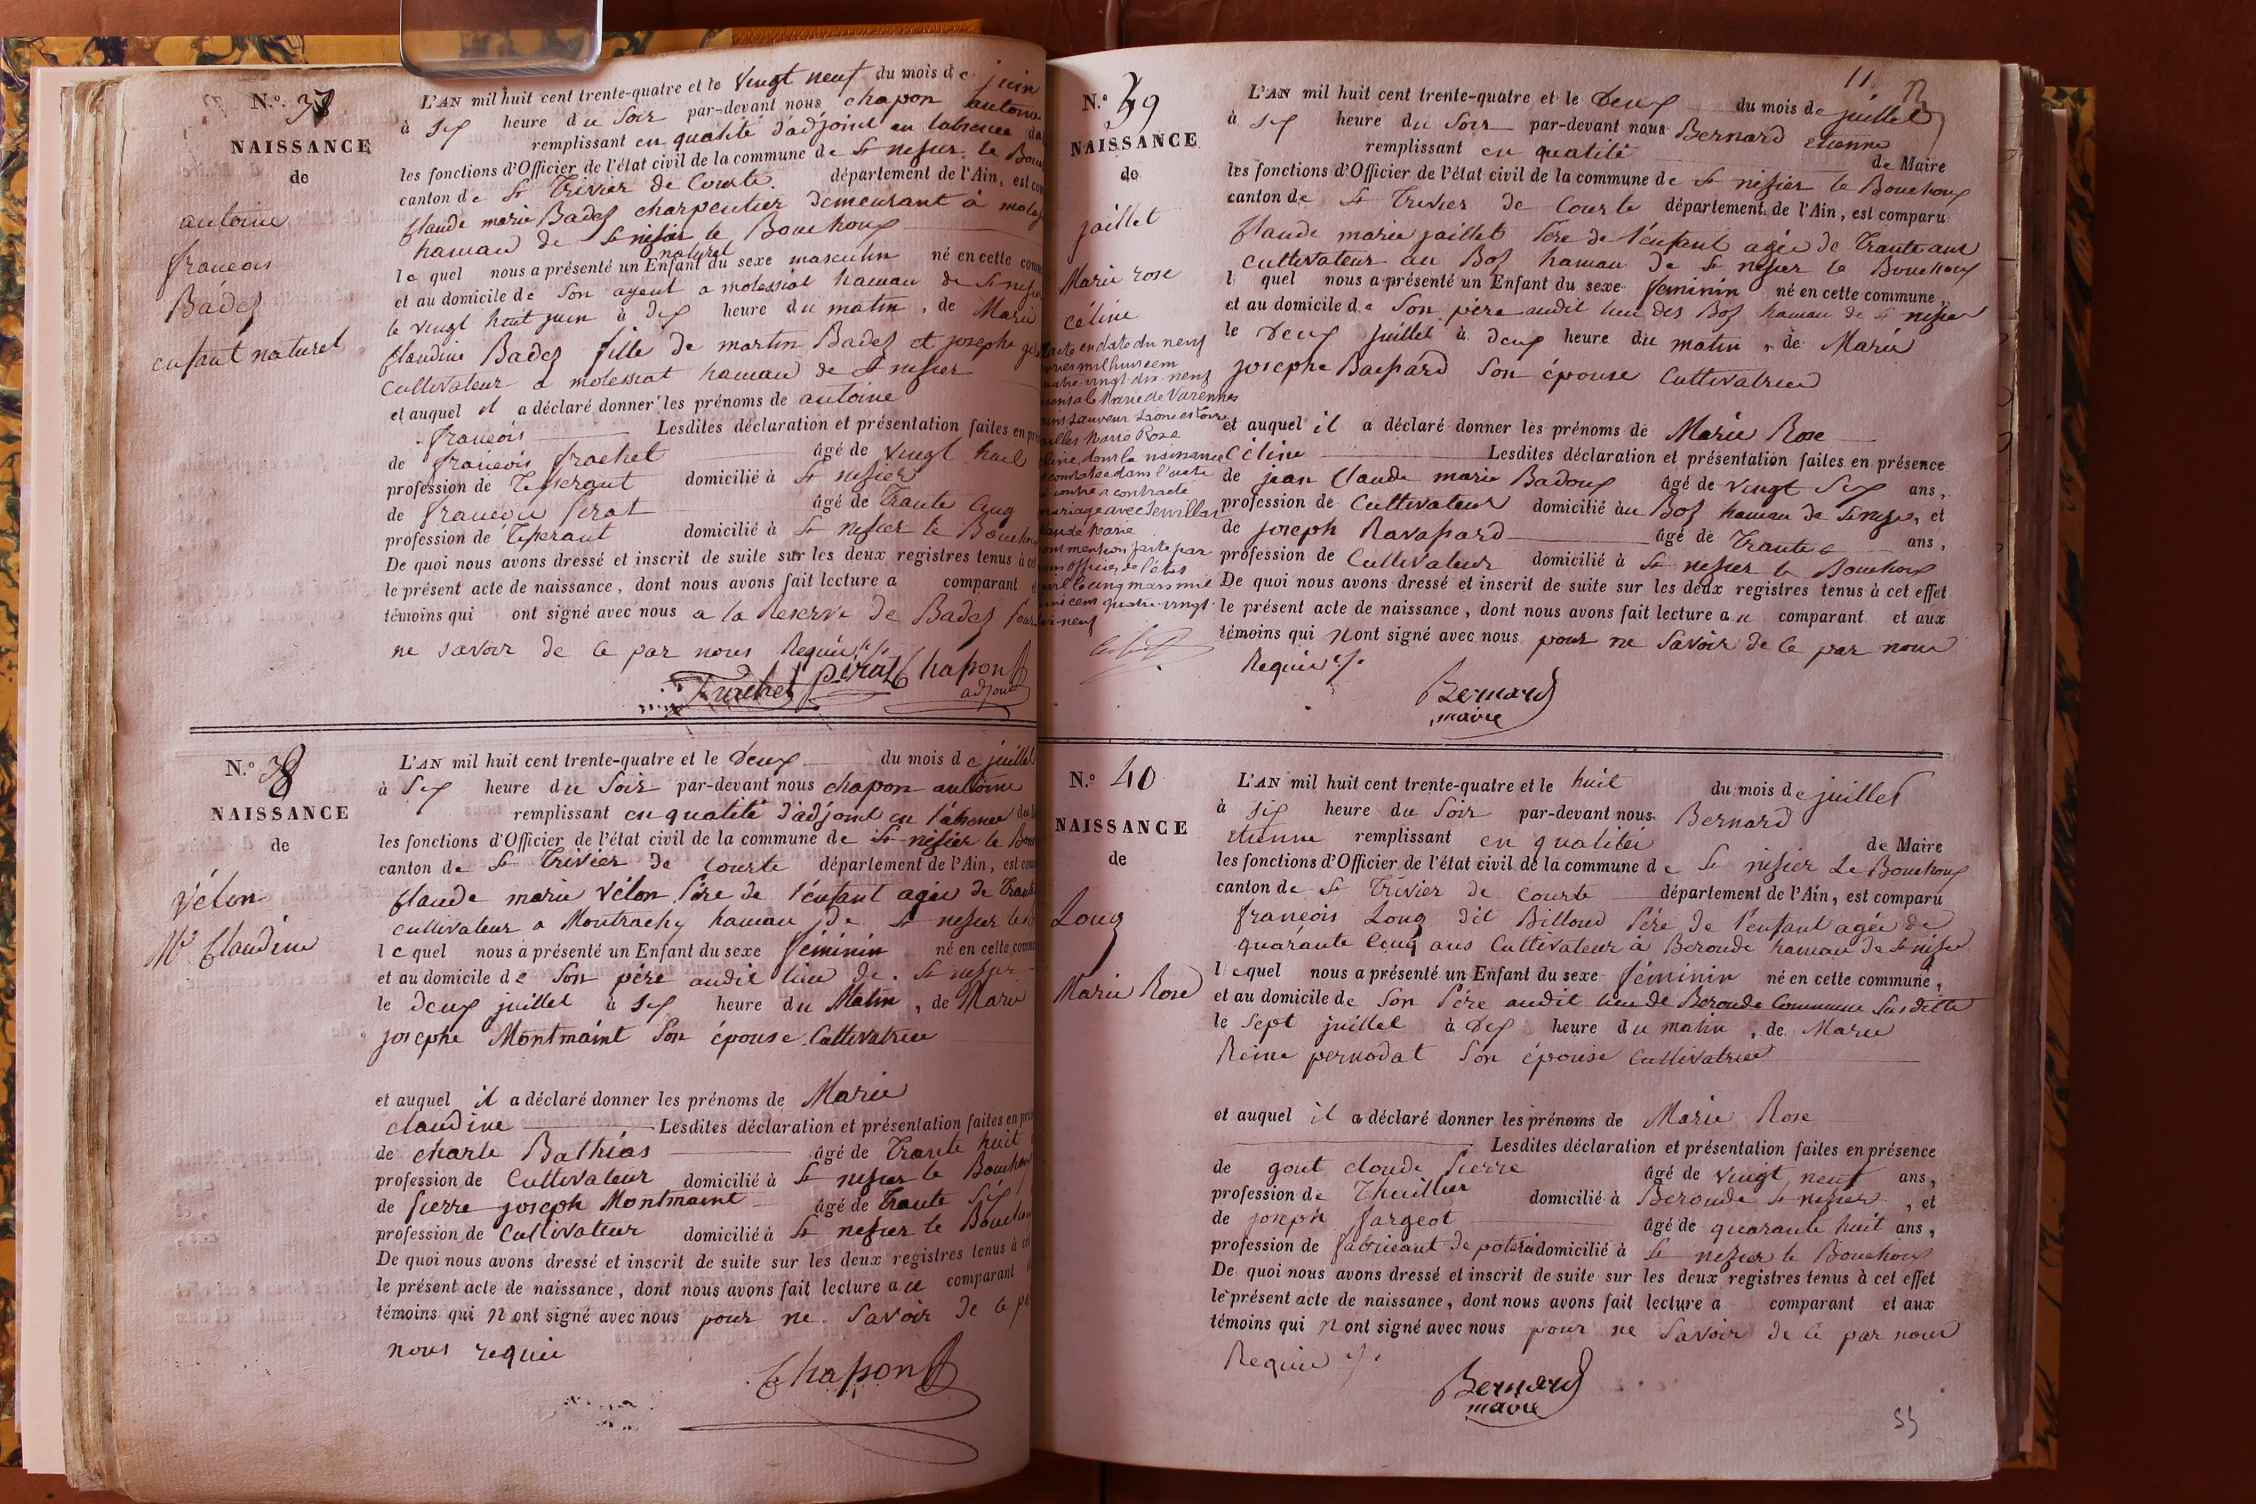 N.º 37
NAISSANCE
de
antoine
francois
Badez
enfant naturel
L'AN mil huit cent trente-quatre et le vingt neuf du mois de juin
à six heure du soir par-devant nous chapon antoine
remplissant en qualité d'adjoint en l'absence du
les fonctions d'Officier de l'état civil de la commune de St nizier le Bou
canton de St Trivier de Courte. département de l'Ain, est com
Claude marie Badez charpentier demeurant à moless
hameau de St nizier le Bouchoux
naturel
le quel nous a présenté un Enfant du sexe masculin né en cette comm
et au domicile de Son ayeul a molessiat hameau de St nizie
le vingt huit juin à dix heure du matin, de Marie
Claudine Badez fille de martin Badez et josephe
Cultivateur a molessiat hameau de St nizier
et auquel il a déclaré donner les prénoms de antoine
francois Lesdites déclaration et présentation faites en pré
de francois frachet âgé de vingt huit
profession de Tisserant domicilié à St nizier
de francois Perat âgé de Trante cinq
profession de Tisserant domicilié à St nizier le Boucho
De quoi nous avons dressé et inscrit de suite sur les deux registres tenus à cet
le présent acte de naissance, dont nous avons fait lecture a comparant e
témoins qui ont signé avec nous a la Reserve de Badez pour
ne savoir de ce par nous Requis
Frachet pérat Chapon
adjoint
N.º 38
NAISSANCE
de
Vélon
Mie Claudine
L'AN mil huit cent trente-quatre et le deux du mois de juillet
à Six heure du Soir par-devant nous chapon antoine
remplissant en qualité d'adjoint en l'absence du
les fonctions d'Officier de l'état civil de la commune de St nizier le Bou
canton de St Trivier de Courte département de l'Ain, est com
Claude marie Vélon Père de l'enfant agée de trante
cultivateur a Montrachy hameau de St nizier le
le quel nous a présenté un Enfant du sexe féminin né en cette comm
et au domicile de Son père audit lieu de St nizier
le deux juillet à Six heure du Matin, de Marie
josephe Montmaint Son épouse Cultivatrice
et auquel il a déclaré donner les prénoms de Marie
claudine Lesdites déclaration et présentation faites en pré
de charle Bathias âgé de Trante huit
profession de Cultivateur domicilié à St nizier le Bouchou
de Pierre joseph Montmaint âgé de Trante Six
profession de Cultivateur domicilié à St nizier le Bouchou
De quoi nous avons dressé et inscrit de suite sur les deux registres tenus à cet
le présent acte de naissance, dont nous avons fait lecture au comparant
témoins qui n ont signé avec nous pour ne Savoir de ce p
nous requis
Chapon
11
N.º 39
NAISSANCE
de
jaillet
Marie rose
céline
acte en date du neuf
mil huit cent
quatre vingt dix neuf
Maire de Varennes
saint Sauveur Saone et Loire
Marie Rose
céline, dont la naissance
constatée dans l'acte
ci contre a contracté
mariage avec
Claude Marie
dont mention faite par
nous officier de l'état
civil le cinq mars mil
huit cent quatre vingt
dix-neuf
L'AN mil huit cent trente-quatre et le Deux du mois de juillet
à six heure du Soir par-devant nous Bernard etienne
remplissant en qualité de Maire
les fonctions d'Officier de l'état civil de la commune de St nizier le Bouchoux
canton de St Trivier de Courte département de l'Ain, est comparu
Claude marie jaillet Père de l'enfant agée de Trante ans
cultivateur au Boz hameau de St nizier le Bouchoux
l quel nous a présenté un Enfant du sexe feminin né en cette commune,
et au domicile de Son père audit lieu des Boz hameau de St nizier
le Deux juillet à deux heure du matin, de Marie
josephe Baspard Son épouse Cultivatrice
et auquel il a déclaré donner les prénoms de Marie Rose
Céline Lesdites déclaration et présentation faites en présence
de jean Claude marie Badoux âgé de vingt Six ans,
profession de Cultivateur domicilié au Boz hameau de St nizier, et
de joseph Ravassard âgé de Trante ans,
profession de Cultivateur domicilié à St nizier le Bouchoux
De quoi nous avons dressé et inscrit de suite sur les deux registres tenus à cet effet
le présent acte de naissance, dont nous avons fait lecture au comparant et aux
témoins qui n ont signé avec nous pour ne Savoir de ce par nous
Requis
Bernard
maire
N.º 40
NAISSANCE
de
Long
Marie Rose
L'AN mil huit cent trente-quatre et le huit du mois de juillet
à six heure du Soir par-devant nous Bernard
etienne remplissant en qualité de Maire
les fonctions d'Officier de l'état civil de la commune de St nizier Le Bouchoux
canton de St Trivier de Courte département de l'Ain, est comparu
francois Long dit Billoud Père de l'enfant agée de
quarante Cinq ans Cultivateur à Beronde hameau de St nizier
le quel nous a présenté un Enfant du sexe féminin né en cette commune,
et au domicile de Son Père audit lieu de Beronde Commune Susditte
le Sept juillet à Dix heure du matin, de Marie
Reine pernodat Son épouse Cultivatrice
et auquel il a déclaré donner les prénoms de Marie Rose
Lesdites déclaration et présentation faites en présence
de gout claude Pierre âgé de vingt neuf ans,
profession de Thuillier domicilié à Beronde St nizier, et
de joseph fargeot âgé de quarante huit ans,
profession de fabricant de poterie domicilié à St nizier le Bouchoux
De quoi nous avons dressé et inscrit de suite sur les deux registres tenus à cet effet
le présent acte de naissance, dont nous avons fait lecture a comparant et aux
témoins qui n ont signé avec nous pour ne Savoir de ce par nous
Requis
Bernard
maire